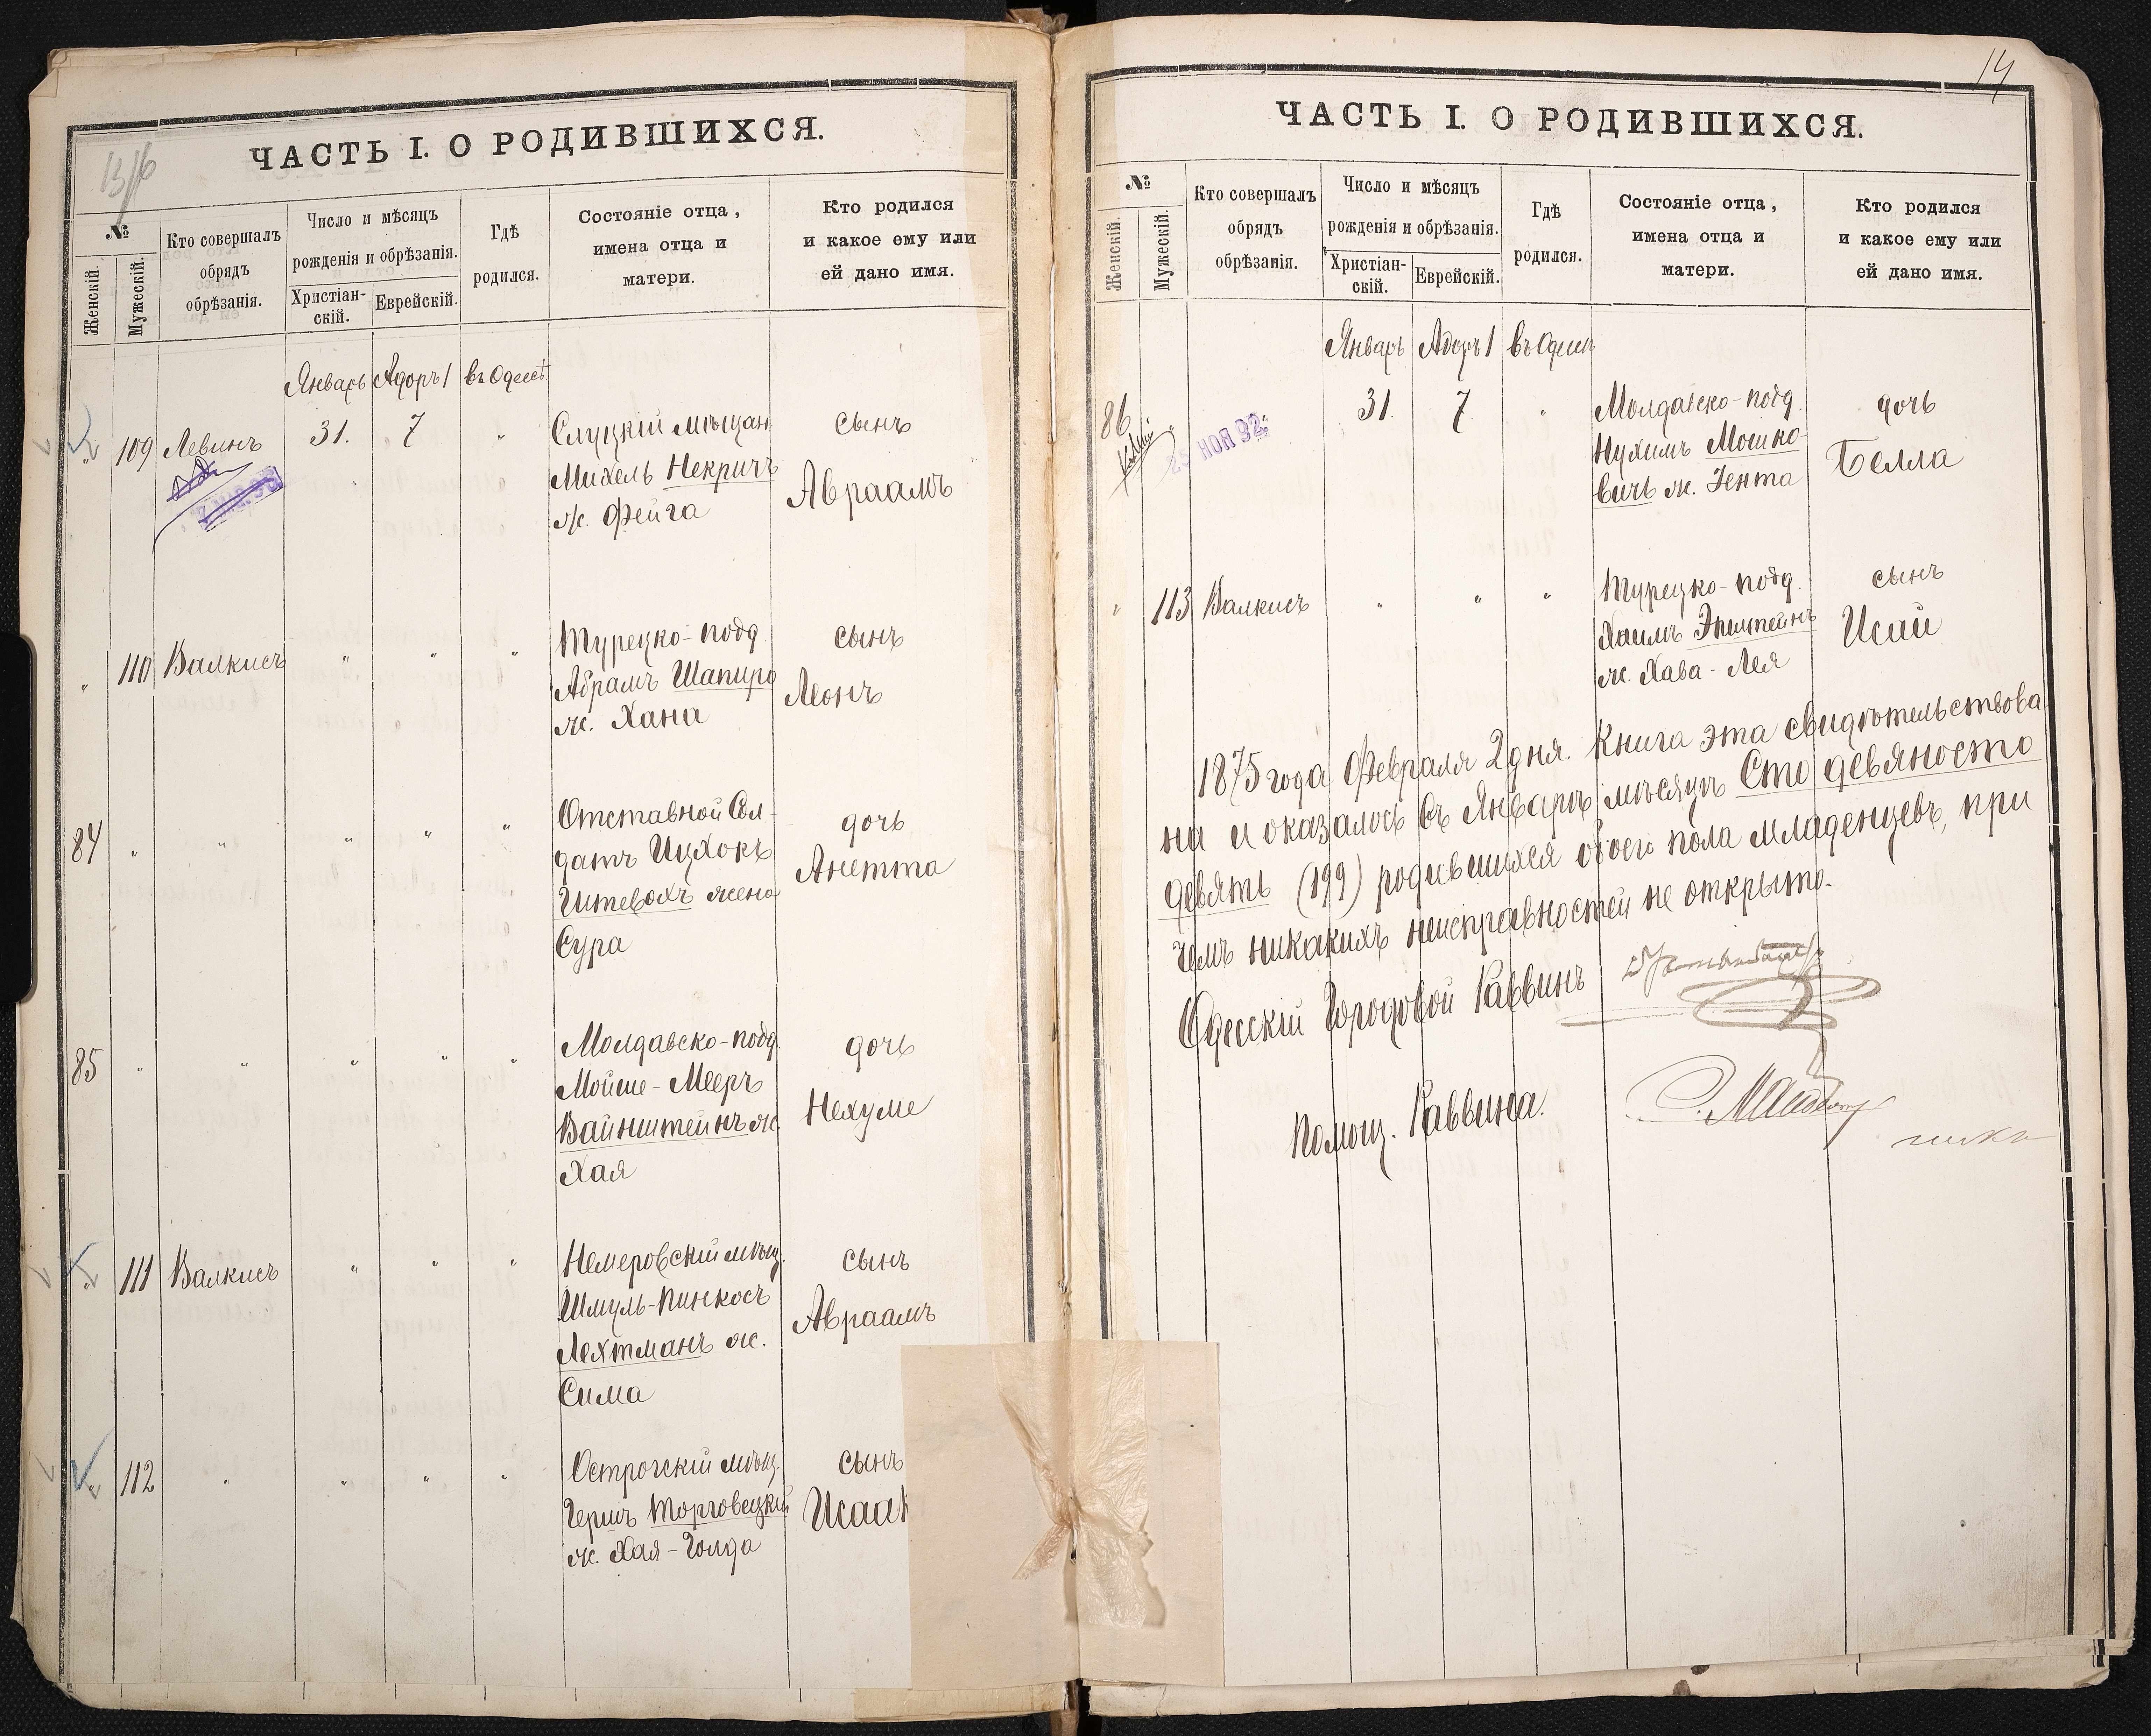 ЧАСТЬ I. О РОДИВШИХСЯ.
13/16
№
Женскій.
Мужескій.
Кто совершалъ
обрядъ
обрѣзанія.
Число и мѣсяцъ
рожденія и обрѣзанія.
Христіан-
скій.
Еврейскій.
Гдѣ
родился.
Состояніе отца,
имена отца и
матери.
Кто родился
и какое ему или
ей дано имя.
Январь Адоръ 1 въ Одессѣ
" 109 Левинъ 31. 7 " Слуцкій мѣщан. сынъ
Михель Некричъ Авраамъ
ж. Фейга
" 110 Валкисъ " " " Турецко-подд. сынъ
Абрамъ Шапиро Леонъ
ж. Хана
84 " " " " " Отставной Сол- дочь
датъ Ицхокъ Анетта
Гитевохъ жена
Сура
85 " " " " Молдавско-подд. дочь
Мойше-Мееръ Нехуме
Вайнштейнъ ж.
Хая
" 111 Валкисъ " " " Немеровскій мѣщ. сынъ
Шмуль-Пинкосъ Авраамъ
Лехтманъ ж.
Сима
" 112 " " " " Острогскій мѣщ. сынъ
Гершъ Торговецкій Исаак
ж. Хая-Голда
14
ЧАСТЬ I. О РОДИВШИХСЯ.
№
Женскій.
Мужескій.
Кто совершалъ
обрядъ
обрѣзанія.
Число и мѣсяцъ
рожденія и обрѣзанія.
Христіан-
скій.
Еврейскій.
Гдѣ
родился.
Состояніе отца,
имена отца и
матери.
Кто родился
и какое ему или
ей дано имя.
Январь Адоръ 1 въ Одессѣ
86 " 31. 7 " Молдавско-подд. дочь
25 НОЯ 92
Нухимъ Мошко- Белла
вичъ ж. Гента
" 113 Валкисъ " " " Турецко-подд. сынъ
Хаимъ Эпштейнъ Исай
ж. Хава-Лея
1875 года Февраля 2 дня. Книга эта свидѣтельствова
на и оказалось въ Январѣ мѣсяцѣ Сто девяносто
девять (199) родившихся обоего пола младенцевъ, при
чемъ никакихъ неисправностей не открыто.
Одесскій Городовой Раввинъ
Помощ. Раввина.